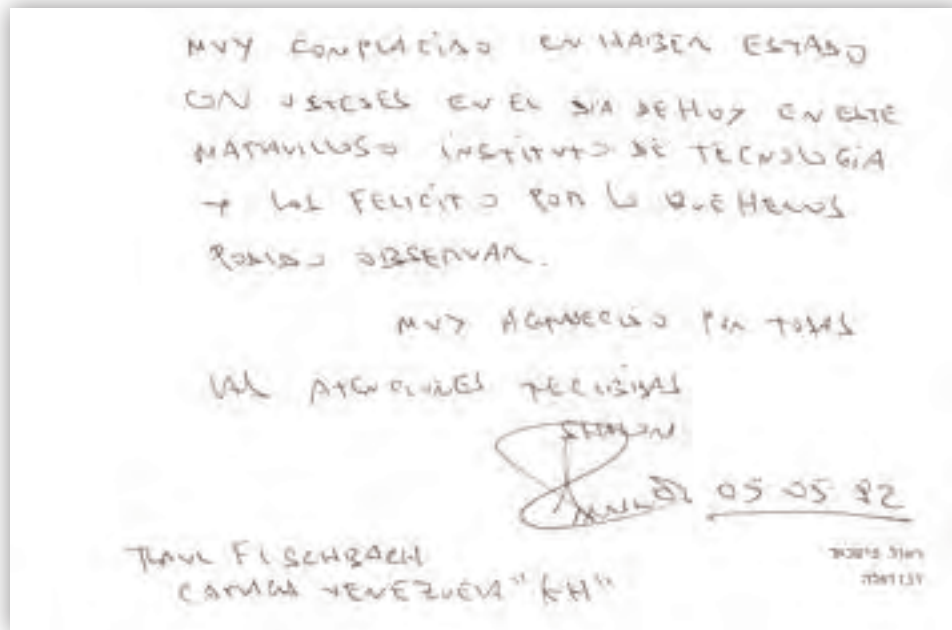 MUY COMPLACIDO EN HABER ESTADO
CON USTEDES EN EL DIA DE HOY EN ESTE
MARAVILLOSO INSTITUTO DE TECNOLOGIA
Y LOS FELICITO POR LO QUE HEMOS
PODIDO OBSERVAR.
MUY AGRADECIDO POR TODAS
LAS ATENCIONES RECIBIDAS
SHALOM
05 05 82
RAUL FISCHBACH
CARACAS VENEZUELA "KH"
ראול פישבאך
ונצואלה